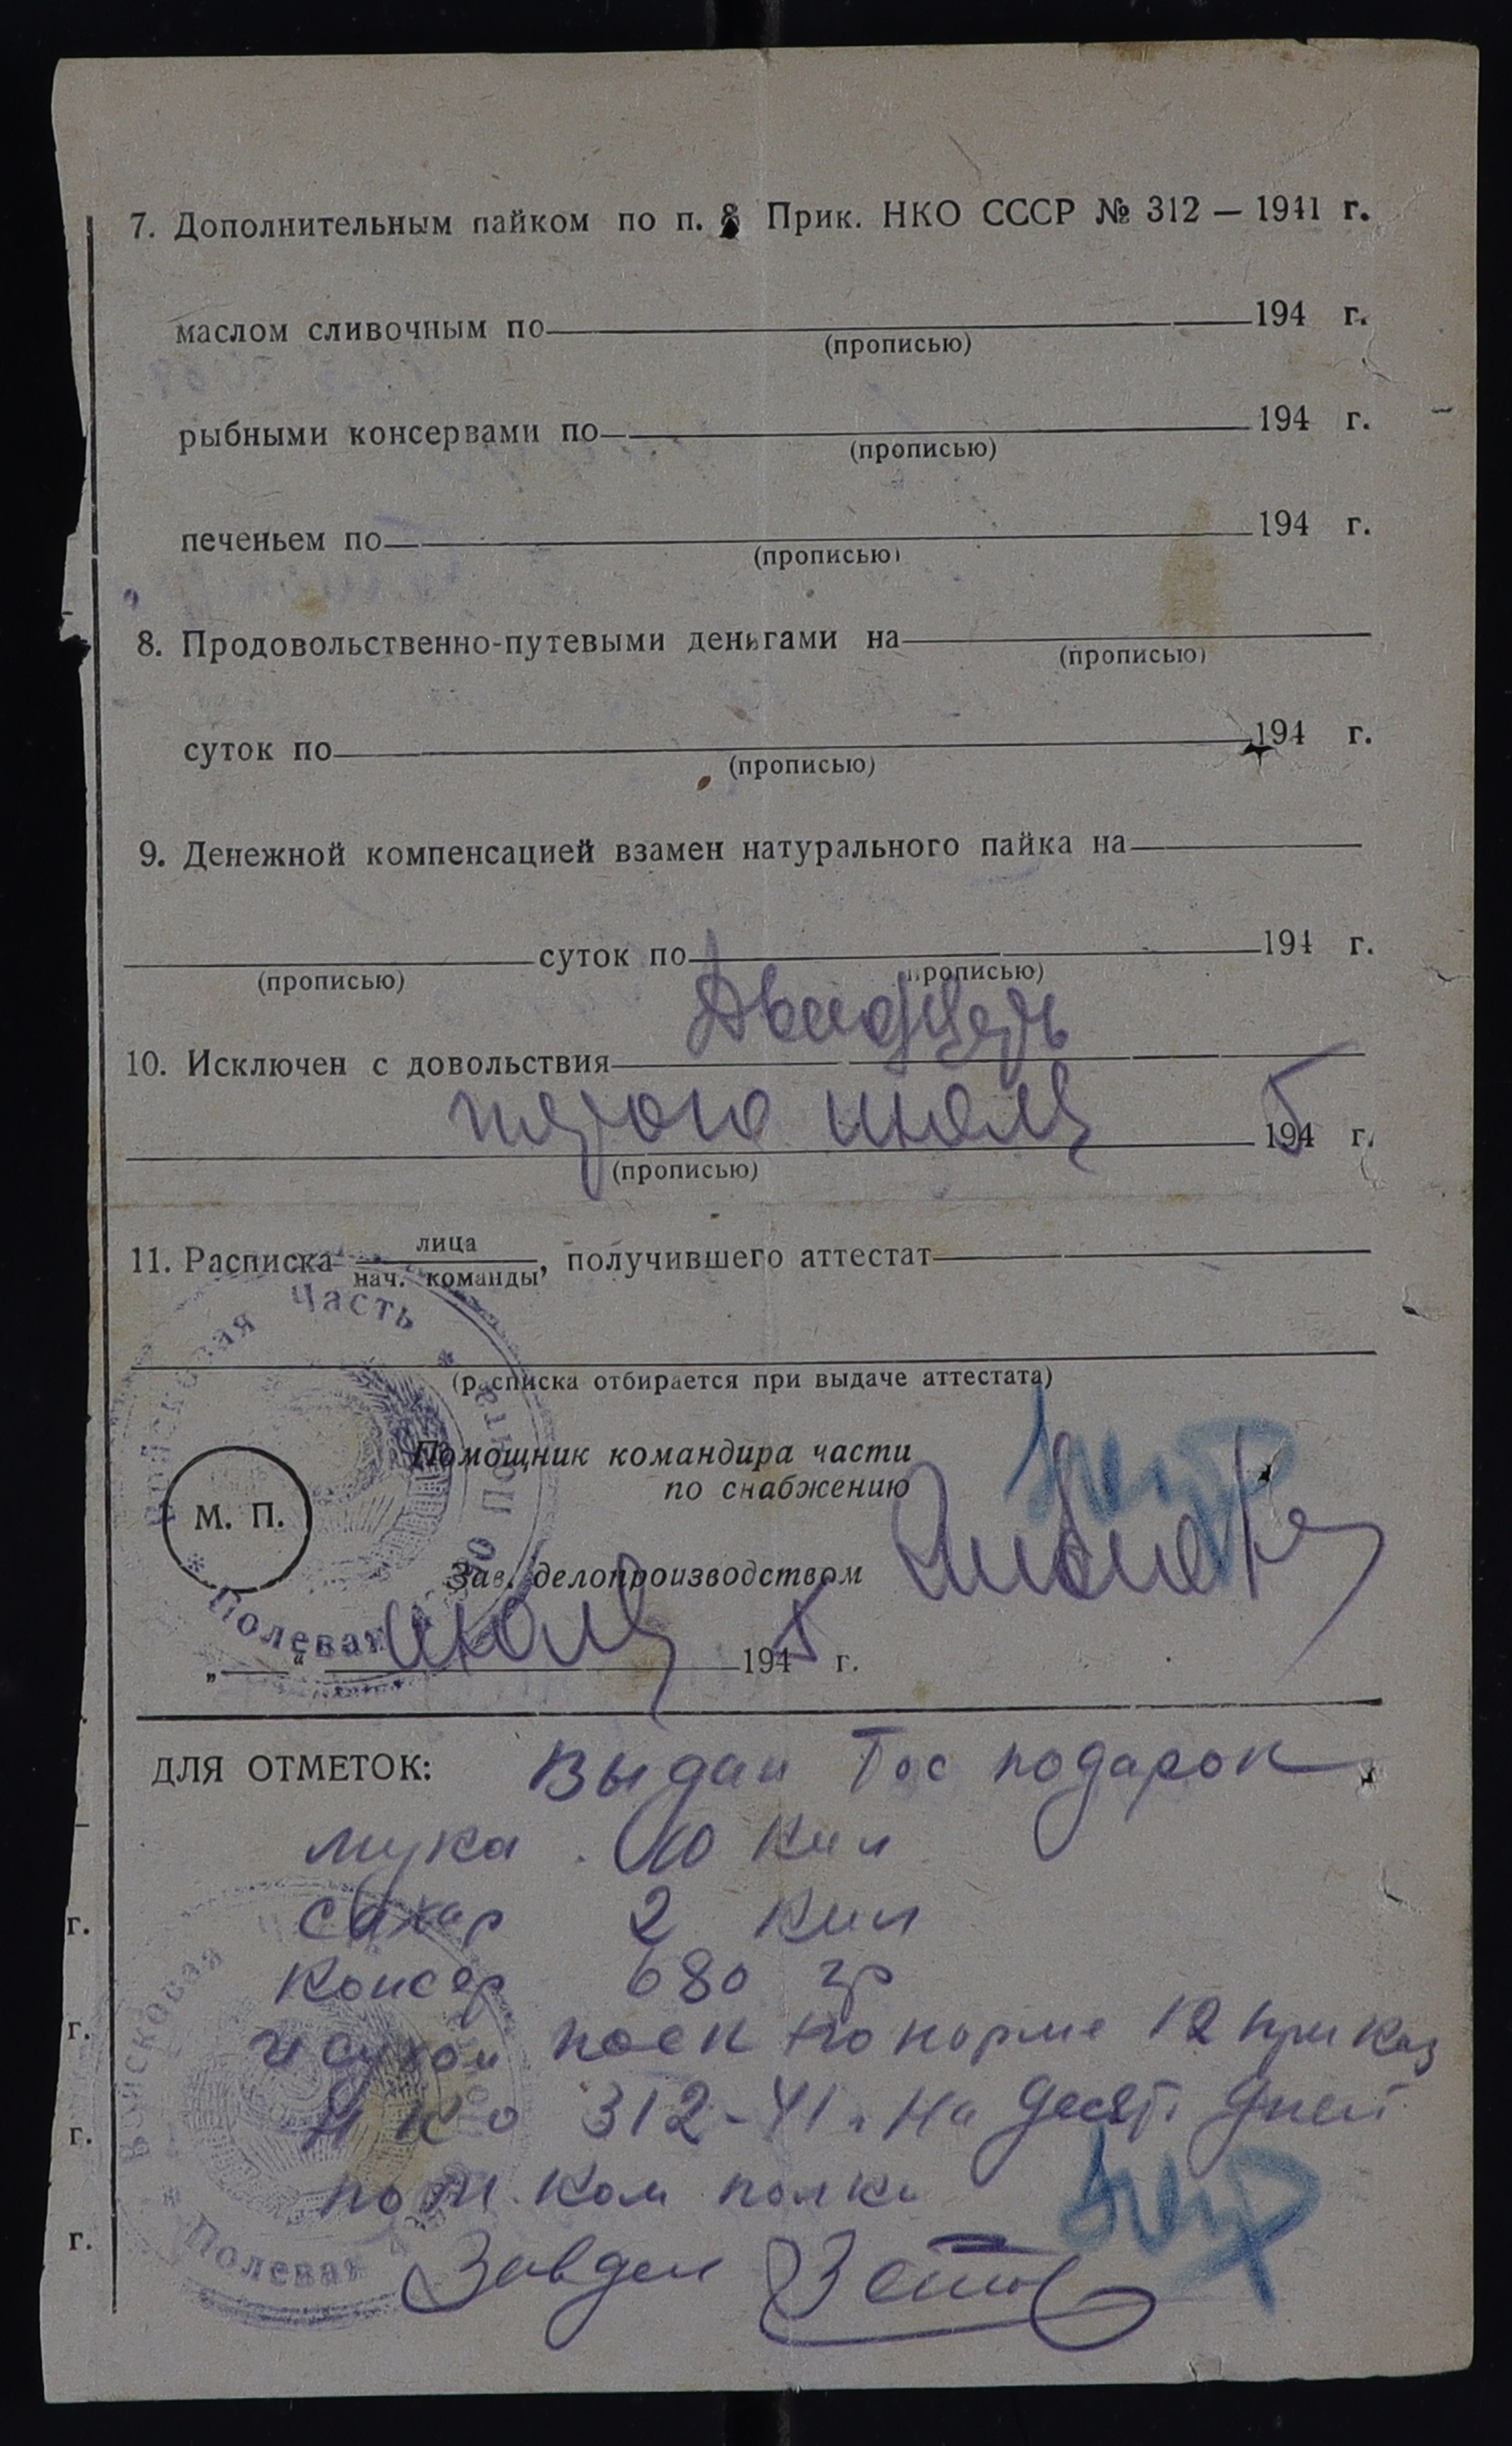 7. Дополнительным пайком по п. 8 Прик. НКО СССР № 312 — 1941 г.
маслом сливочным по 194 г.
(прописью)
рыбными консервами по 194 г.
(прописью)
печеньем по 194 г.
(прописью)
8. Продовольственно-путевыми деньгами на
(прописью)
суток по 194 г.
(прописью)
9. Денежной компенсацией взамен натурального пайка на
суток по 194 г.
(прописью) (прописью)
10. Исключен с довольствия Двадцать
пятого июля 1945 г.
(прописью)
11. Расписка лица
нач. команды, получившего аттестат
(расписка отбирается при выдаче аттестата)
Войсковая Часть * Полевая Почта *
Помощник командира части
по снабжению
М. П.
Зав. делопроизводством
„ “ июля 1945 г.
ДЛЯ ОТМЕТОК: Выдан Гос подарок
мука 10 кил
сахар 2 кил
консер 680 гр
и сухой паек по норме 12 приказ
НКО 312-41 г. на десять дней
пом. ком полка
Завдел
Войсковая
Полевая
г.
г.
г.
г.